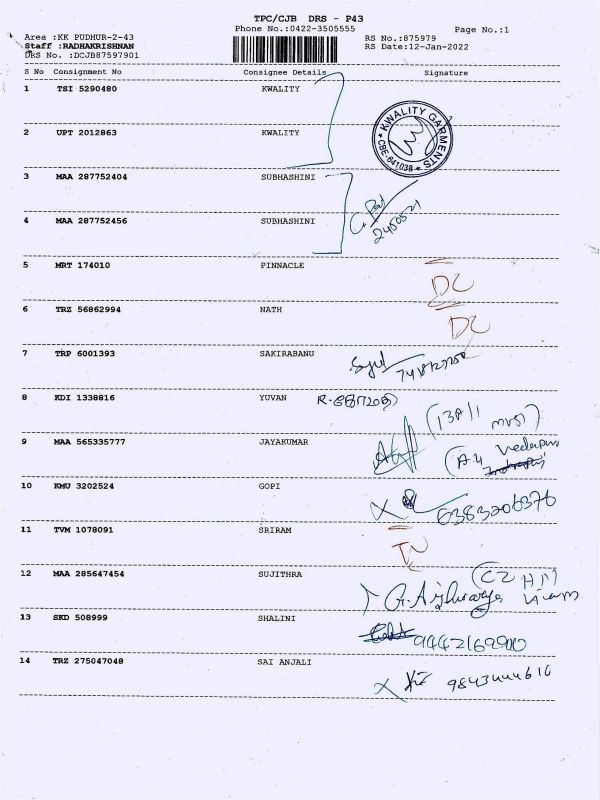 TPC/CJB DRS - P43
Phone No.:0422-3505555
Page No.:1
Area :KK PUDHUR-2-43
RS No.:875979
Staff :RADHAKRISHNAN
RS Date:12-Jan-2022
DRS No. :DCJB87597901
S No Consignment No Consignee Details Signature
1 TSI 5290480 KWALITY
KWALITY GARMENTS
CBE-641038
2 UPT 2012863 KWALITY
3 MAA 287752404 SUBHASHINI
4 MAA 287752456 SUBHASHINI
5 MRT 174010 PINNACLE
DC
6 TRZ 56862994 NATH
DC
7 TRP 6001393 SAKIRABANU
8 KDI 1338816 YUVAN
9 MAA 565335777 JAYAKUMAR
10 KMU 3202524 GOPI
6383206376
11 TVM 1078091 SRIRAM
12 MAA 285647454 SUJITHRA
G. Aishwarya
13 SKD 508999 SHALINI
9442169900
14 TRZ 275047048 SAI ANJALI
9843444616